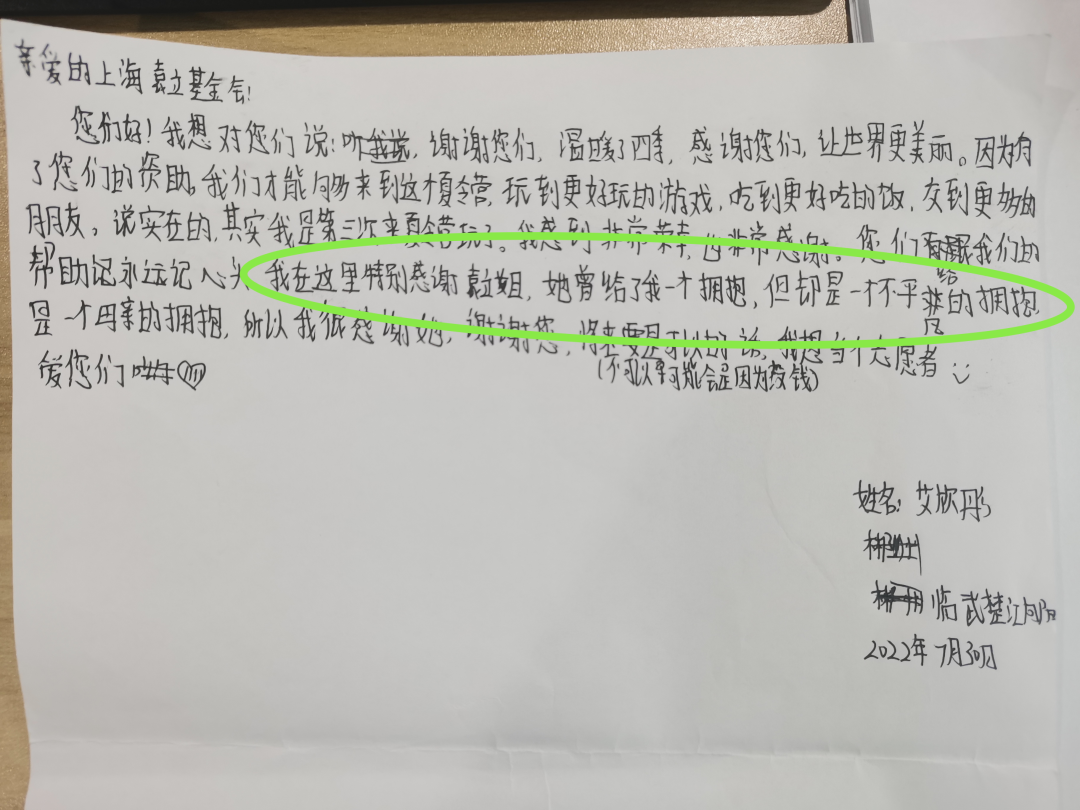 亲爱的上海袁立基金会!
您们好!我想对您们说:听我说,谢谢您们,温暖了四季,感谢您们,让世界更美丽。因为有
了您们的资助。我们才能够来到这个夏令营,玩到更好玩的游戏,吃到更好吃的饭,交到更多的
朋友。说实在的,其实我是第三次来夏令营玩了。我感到非常荣幸,也非常感谢。您们给我们的
帮助记永远记心头,我在这里特别感谢袁立姐,她曾给了我一个拥抱,但却是一个不平凡的拥抱,
是一个母亲的拥抱,所以我很感谢她,谢谢您,将来要是可以的话,我想当个志愿者
(不可以可能会是因为没钱)
爱您们
姓名:艾欣彤
临武楚江
2022年7月30日